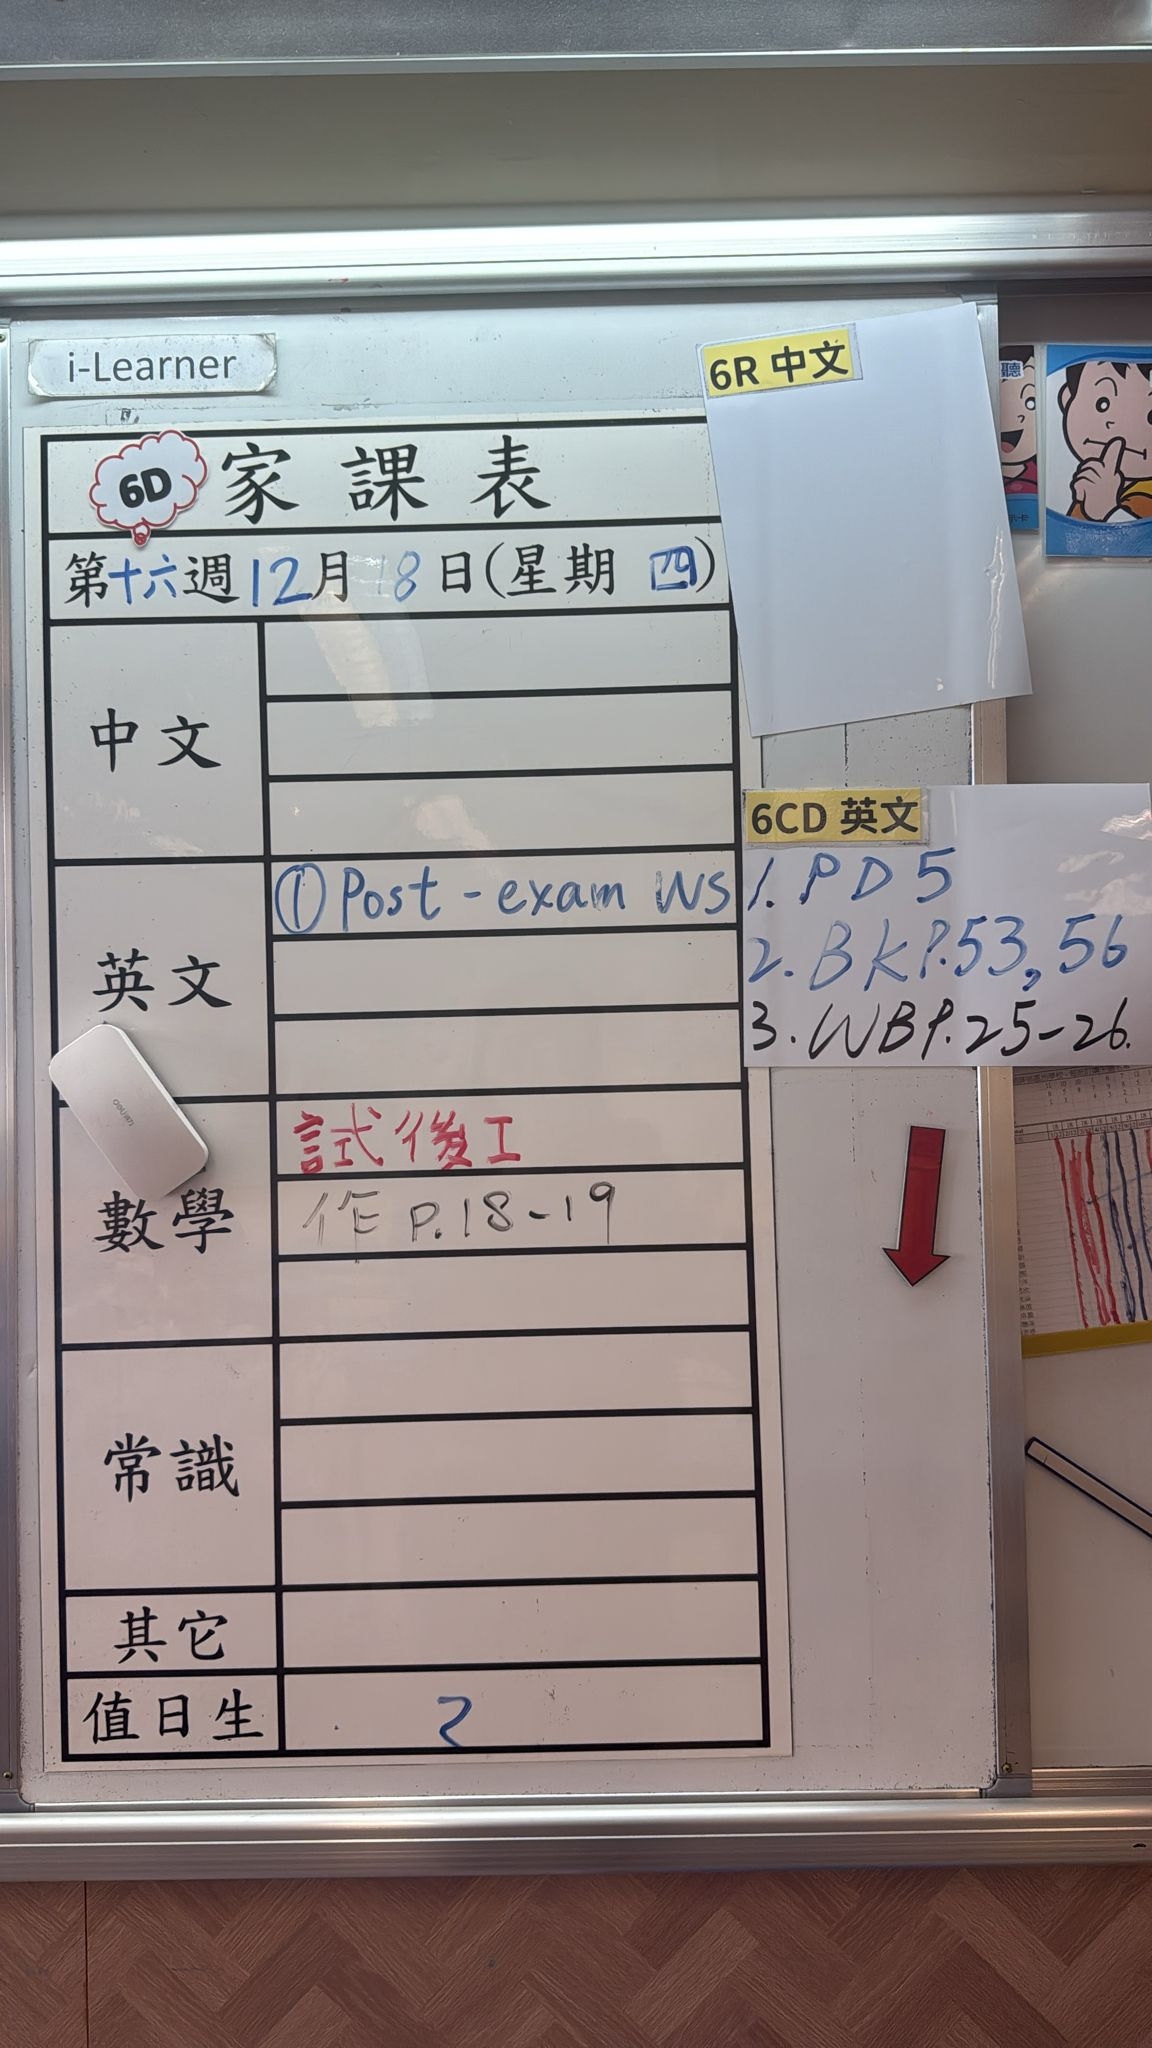 i-Learner
6R 中文
6D 家課表
第十六週 12月 18日(星期 四)
中文
英文
① Post-exam WS
6CD 英文
1. PD 5
2. BK P.53, 56
3. WB P.25-26.
數學
試後工
作 P.18-19
常識
其它
值日生
2
deli